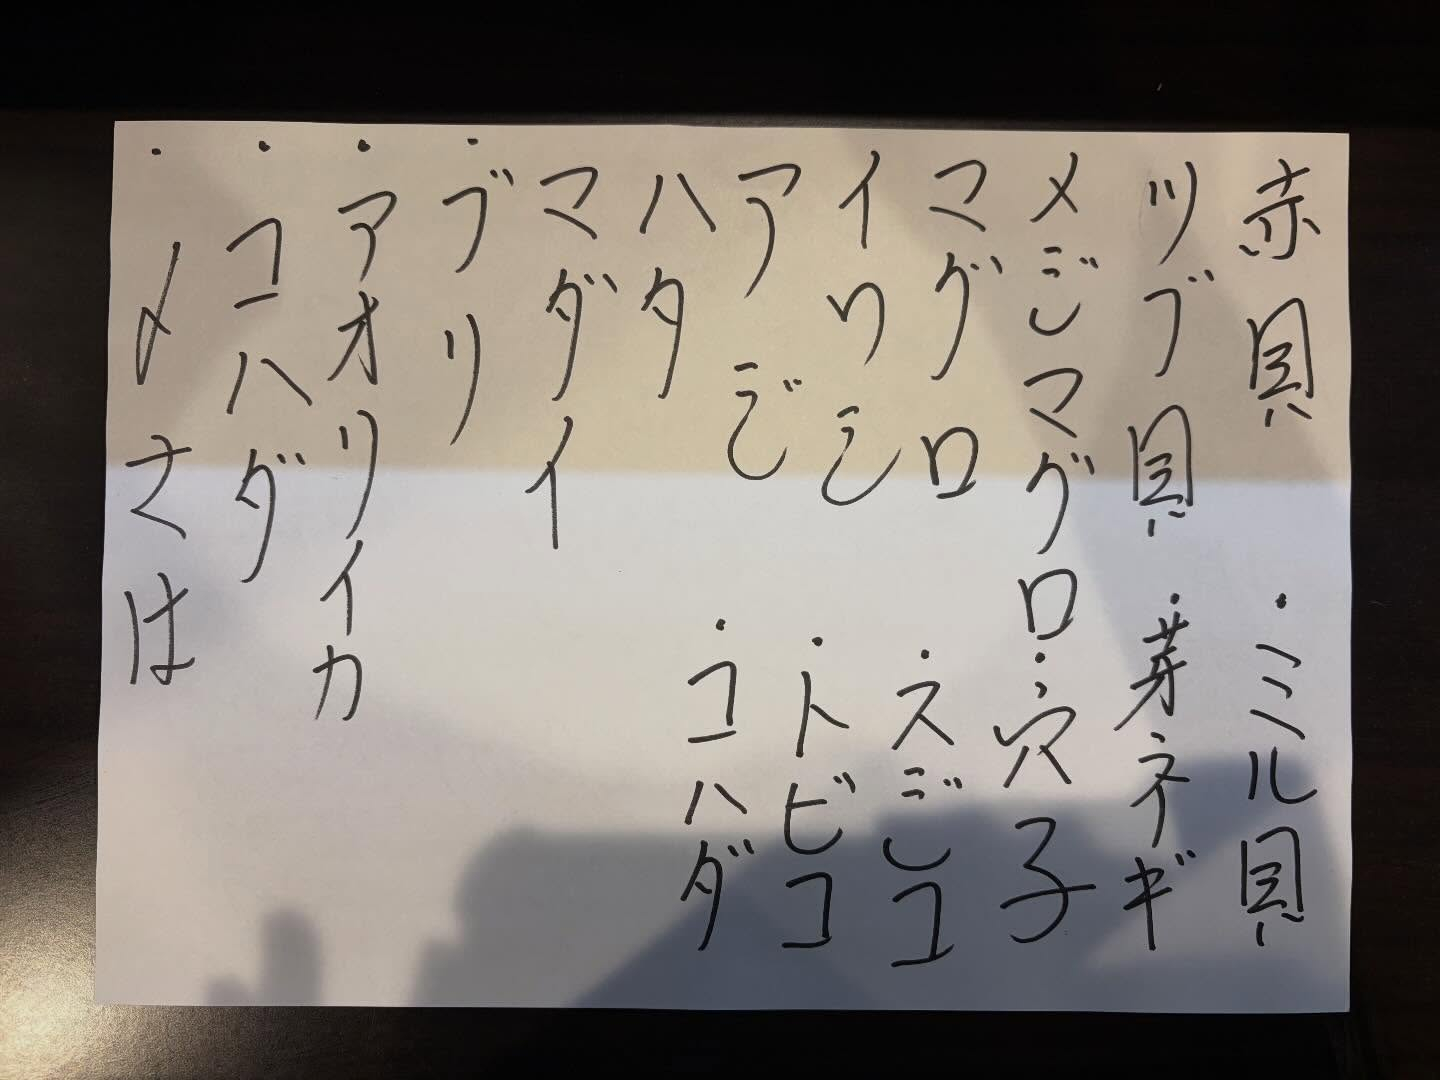 赤貝 ・ミル貝
ツブ貝 ・芽ネギ
メジマグロ ・穴子
マグロ ・スジコ
イワシ ・トビコ
アジ ・コハダ
ハタ
マダイ
・ブリ
・アオリイカ
・コハダ
・〆さば